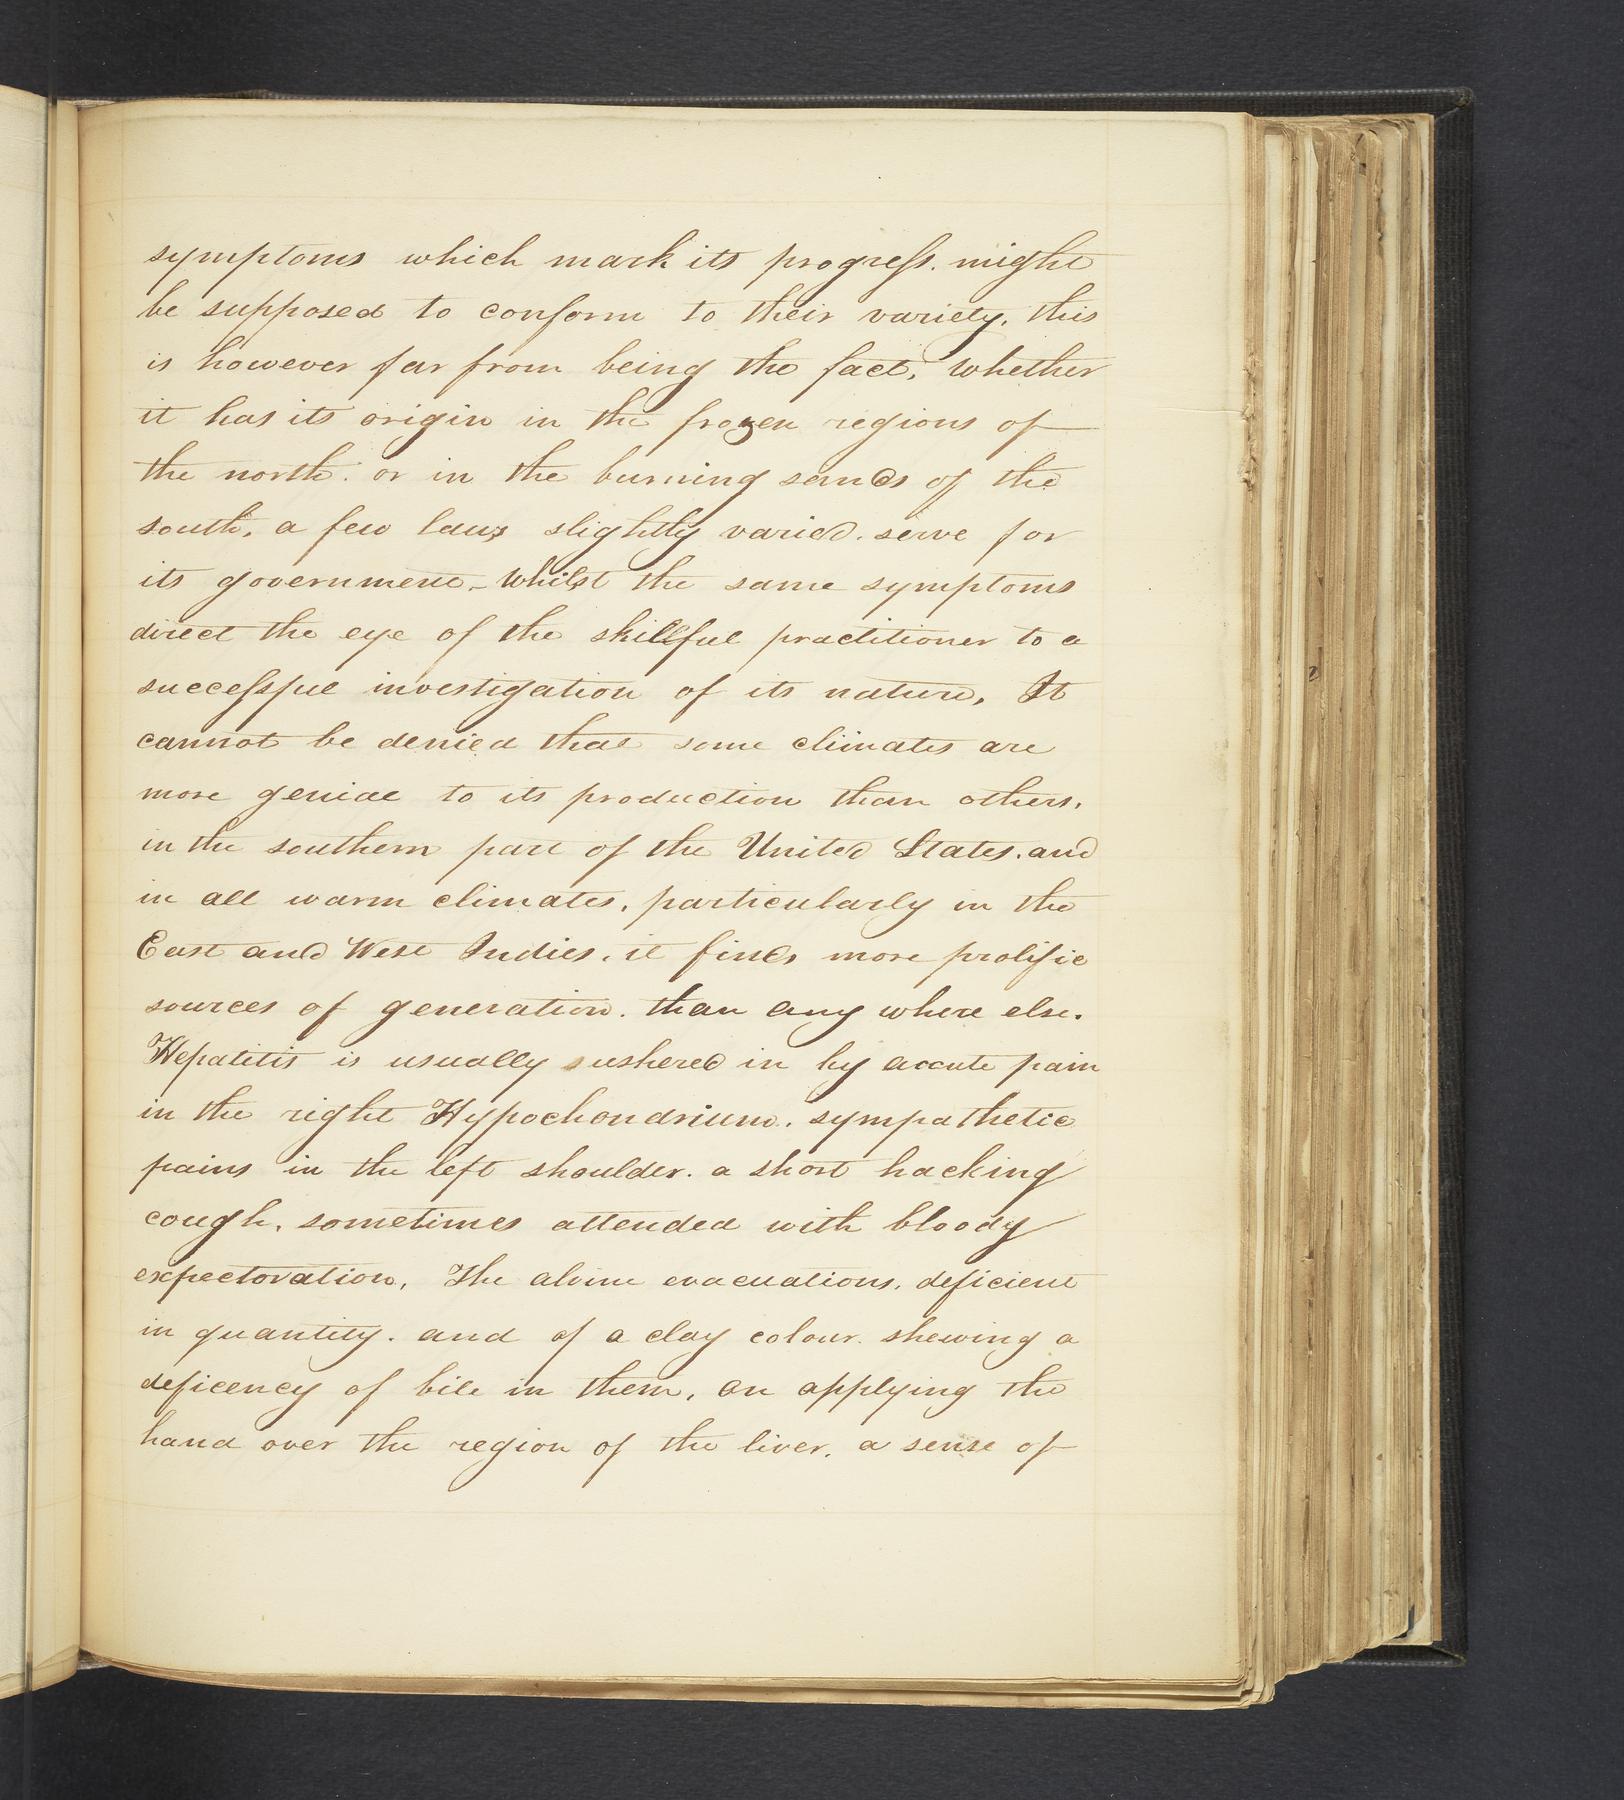 symptoms which mark its progress. might
be supposed to conform to their variety, this
is however far from being the fact, whether
it has its origin in the frozen regions of
the north. or in the burning sands of the
south, a few laws slightly varied. serve for
its government - whilst the same symptoms
direct the eye of the skillful practitioner to a
successful investigation of its nature, It
cannot be denied that some climates are
more genial to its production than others,
in the southern part of the United States. and
in all warm climates, particularly in the
East and West Indies, it finds more prolific
sources of generation. than any where else.
Hepatitis is usually ushered in by accute pain
in the right Hypochondrium, sympathetic
pains in the left shoulder. a short hacking
cough, sometimes attended with bloody
expectoration, The alvine evacuations, deficient
in quantity. and of a clay colour. shewing a
deficency of bile in them, on applying the
hand over the region of the liver, a sense of